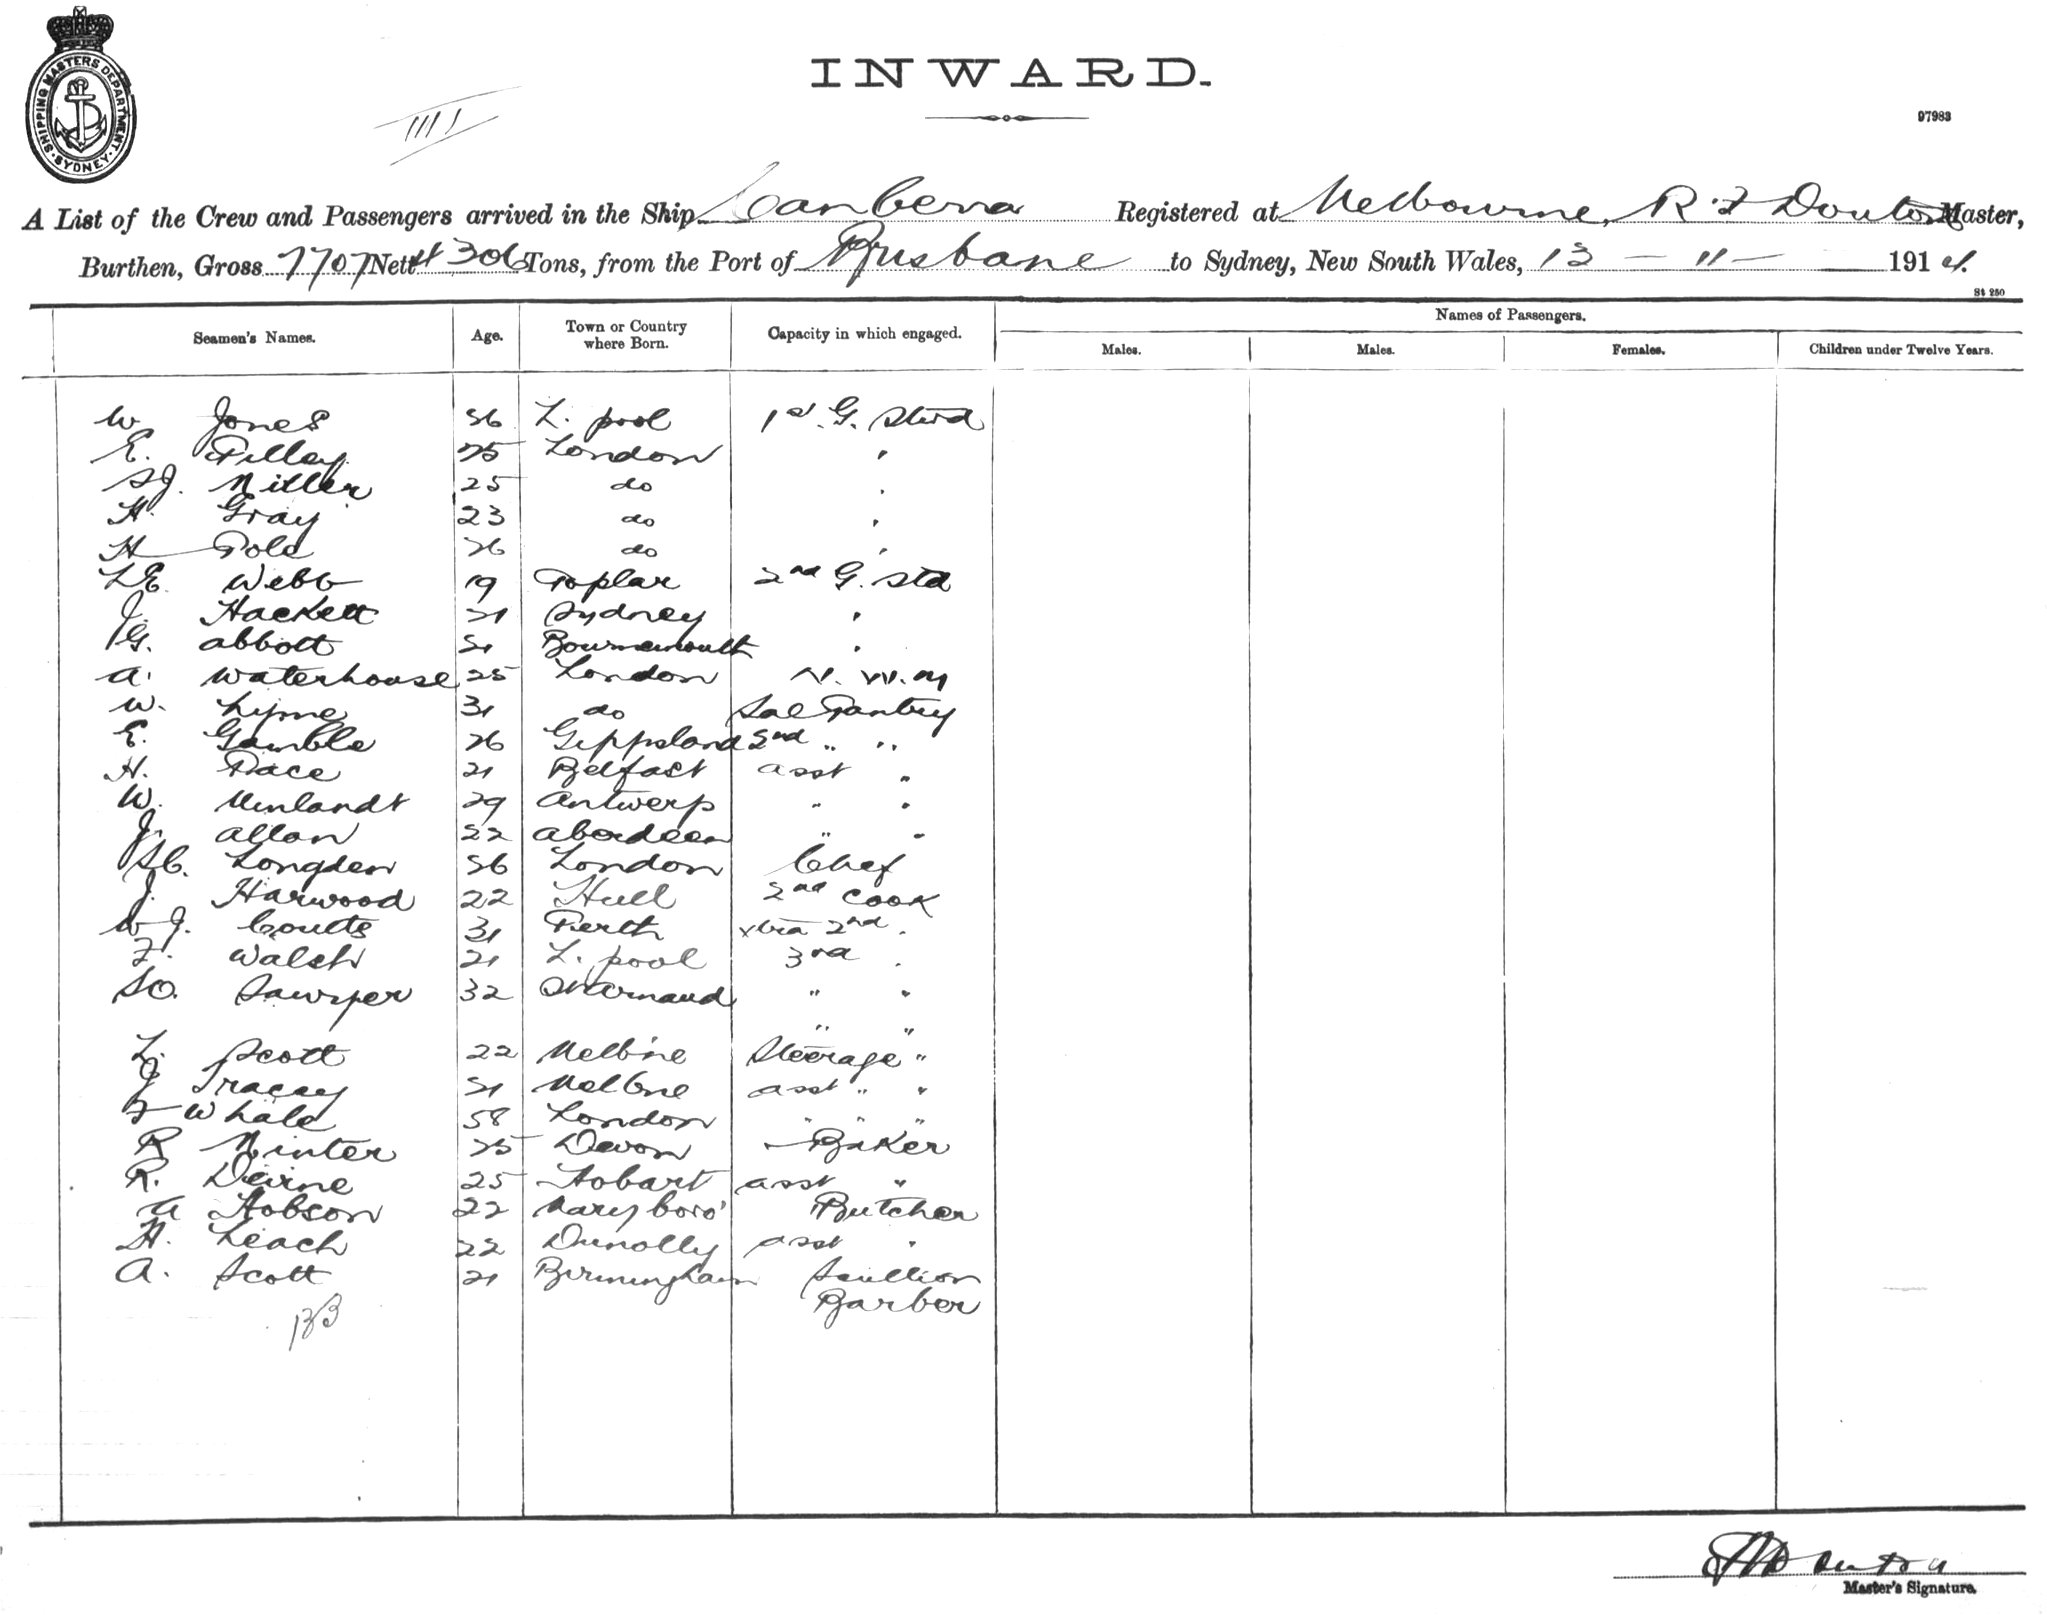 SHIPPING MASTERS DEPARTMENT
SYDNEY
INWARD.
97983
A List of the Crew and Passengers arrived in the Ship Canberra Registered at Melbourne, R. J Douton Master,
Burthen, Gross 7707 Nett 4306 Tons, from the Port of Brisbane to Sydney, New South Wales, 13 - 11 - 1914.
St 250
Seamen's Names. Age. Town or Country where Born. Capacity in which engaged. Names of Passengers.
Males. Males. Females. Children under Twelve Years.
W Jones 36 L. pool 1st. G. Stwd
E. Pilley 25 London "
Miller 25 do "
H. Gray 23 do "
H Pole 26 do "
L E Webb 19 Poplar 2nd G. Std
J. Hackett 21 Sydney "
G. Abbott 21 Bournemouth "
A. Waterhouse 25 London N. W. M
W. Lyme 31 do Sal Pantry
E. Gamble 26 Gippsland 2nd " "
H. Pace 21 Belfast asst "
W. 29 Antwerp " "
J. Allan 22 Aberdeen " "
Longden 36 London Chef
J. Harwood 22 Hull 2nd Cook
W J. Coutts 31 Perth xtra 2nd "
F. Walsh 21 L. pool 3rd "
Sawyer 32 St Arnaud " "
" "
L. Scott 22 Melb'ne Steerage "
J Tracey 21 Melbne asst " "
F Whale 58 London " " "
R Minter 25 Devon Baker
R. Devine 25 Hobart asst "
A Hobson 22 Maryboro' Butcher
H. Leach 22 Dunolly asst "
A. Scott 21 Birmingham Scullion
Barber
Master's Signature.